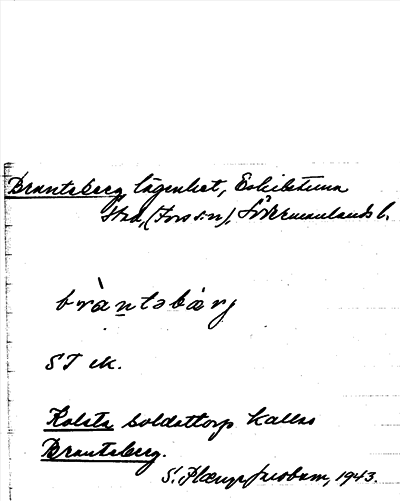 Brantsberg lägenhet, Eskilstuna
stad, (Fors sn), Södermanlands l.
bràntsbärj
ST ek.
Kolsta soldattorp kallas
Brantsberg.
S. 1943.